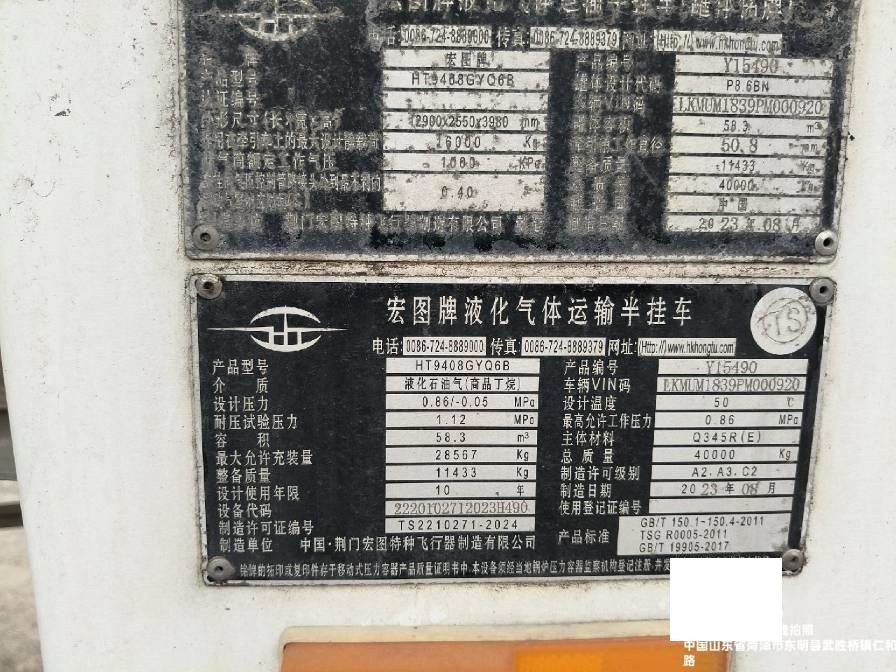 宏图牌液化气体运输半挂车(罐体铭牌)
电话:0086-724-8889000 传真:0086-724-8889379 网址:(Http://)www.hkhongtu.com
宏图牌 产品编号 Y15490
产品型号 HT9408GYQ6B 罐体设计代码 P8.6BN
LKMUM1839PM000920
12900x2550x3980 mm 58.3 m³
16000 Kg 50.8 mm
1000 KPa 整备质量 11433 Kg
40000 Kg
0.40 中国
荆门宏图特种飞行器制造有限公司 2023年08月
宏图牌液化气体运输半挂车
TS
电话:0086-724-8889000 传真:0086-724-8889379 网址:(Http://)www.hkhongtu.com
产品型号 HT9408GYQ6B 产品编号 Y15490
介质 液化石油气(商品丁烷) 车辆VIN码 LKMUM1839PM000920
设计压力 0.86/-0.05 MPa 设计温度 50 ℃
耐压试验压力 1.12 MPa 最高允许工作压力 0.86 MPa
容积 58.3 m³ 主体材料 Q345R(E)
最大允许充装量 28567 Kg 总质量 40000 Kg
整备质量 11433 Kg 制造许可级别 A2、A3、C2
设计使用年限 10 年 制造日期 2023年08月
设备代码 2220102712023H490 使用登记证编号
制造许可证编号 TS2210271-2024 产品标准 GB/T 150.1~150.4-2011
TSG R0005-2011
GB/T 19905-2017
制造单位 中国·荆门宏图特种飞行器制造有限公司
铭牌的拓印或复印件存于移动式压力容器产品质量证明书中。本设备须经当地锅炉压力容器监察机构登记注册,并发
拍照
中国山东省菏泽市东明县武胜桥镇仁和
路